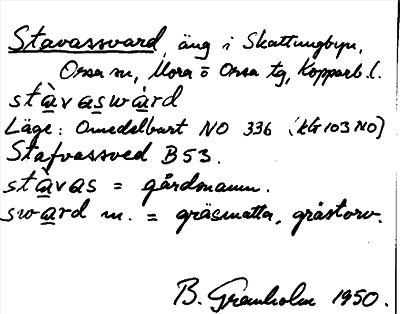 Stavassvard, äng i Skattungbyn,
Orsa sn, Mora o Orsa tg, Kopparb. l.
stàvaswàrd
Läge: Omedelbart NO 336 (kG 103 NO)
Stafvassved B 53.
stàvas = gårdnamn.
sward m. = gräsmatta, grästorv.
B. Granholm 1950.